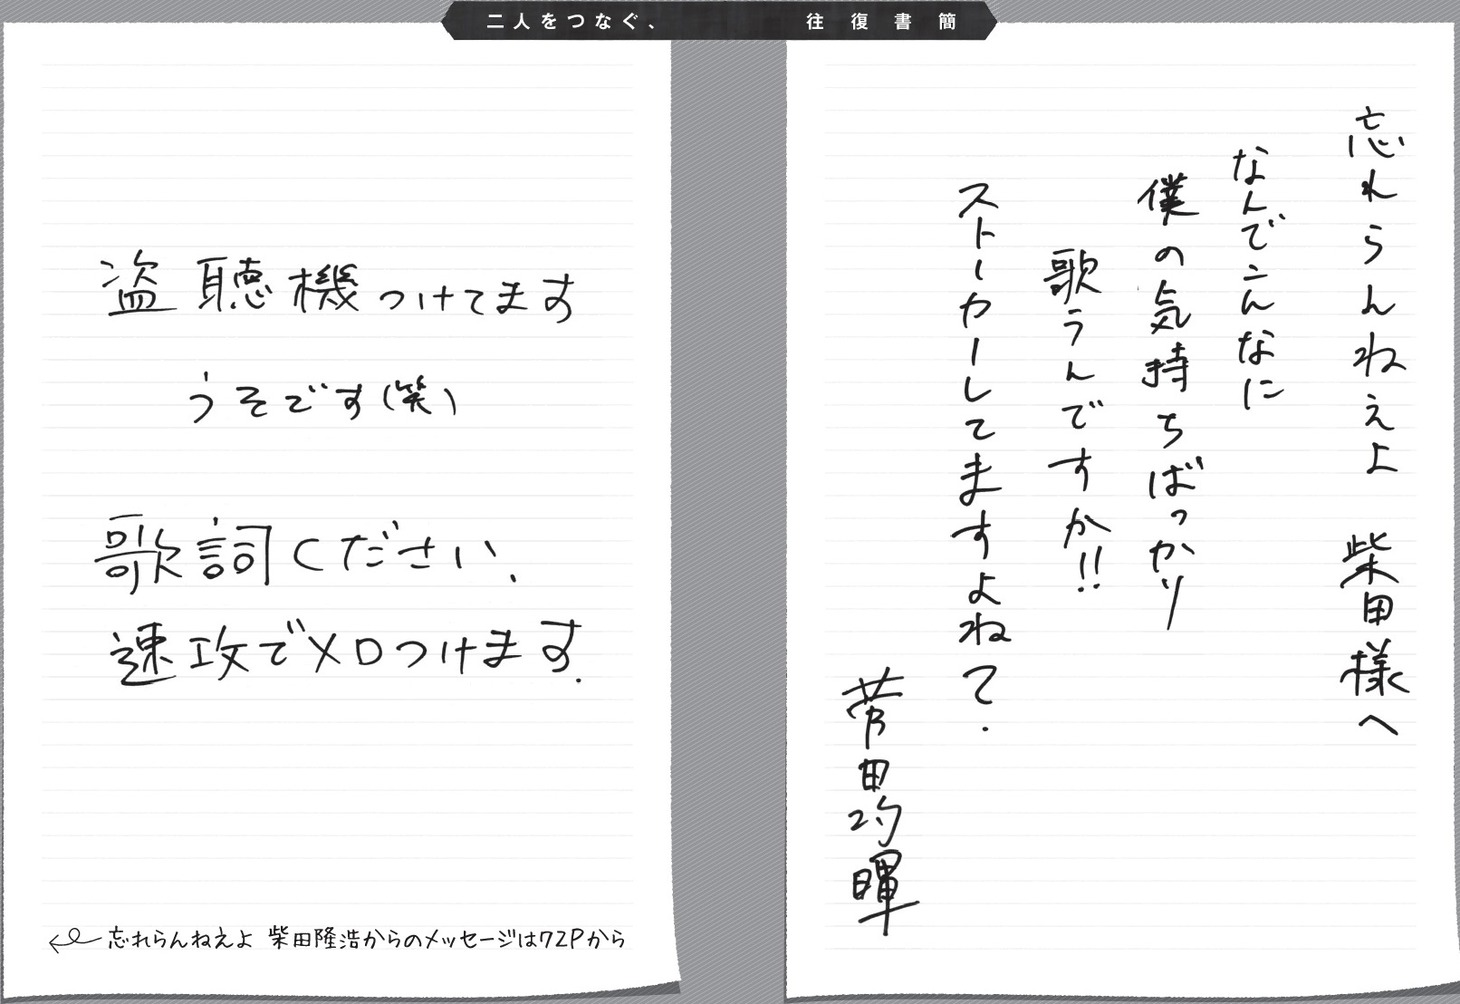 二人をつなぐ、 往復書簡
忘れらんねえよ 柴田様へ
なんでこんなに
僕の気持ちばっかり
歌うんですか!!
ストーカーしてますよね?
菅田将暉
盗聴機つけてます
うそです(笑)
歌詞ください、
速攻でメロつけます.
忘れらんねえよ 柴田隆浩からのメッセージは72Pから